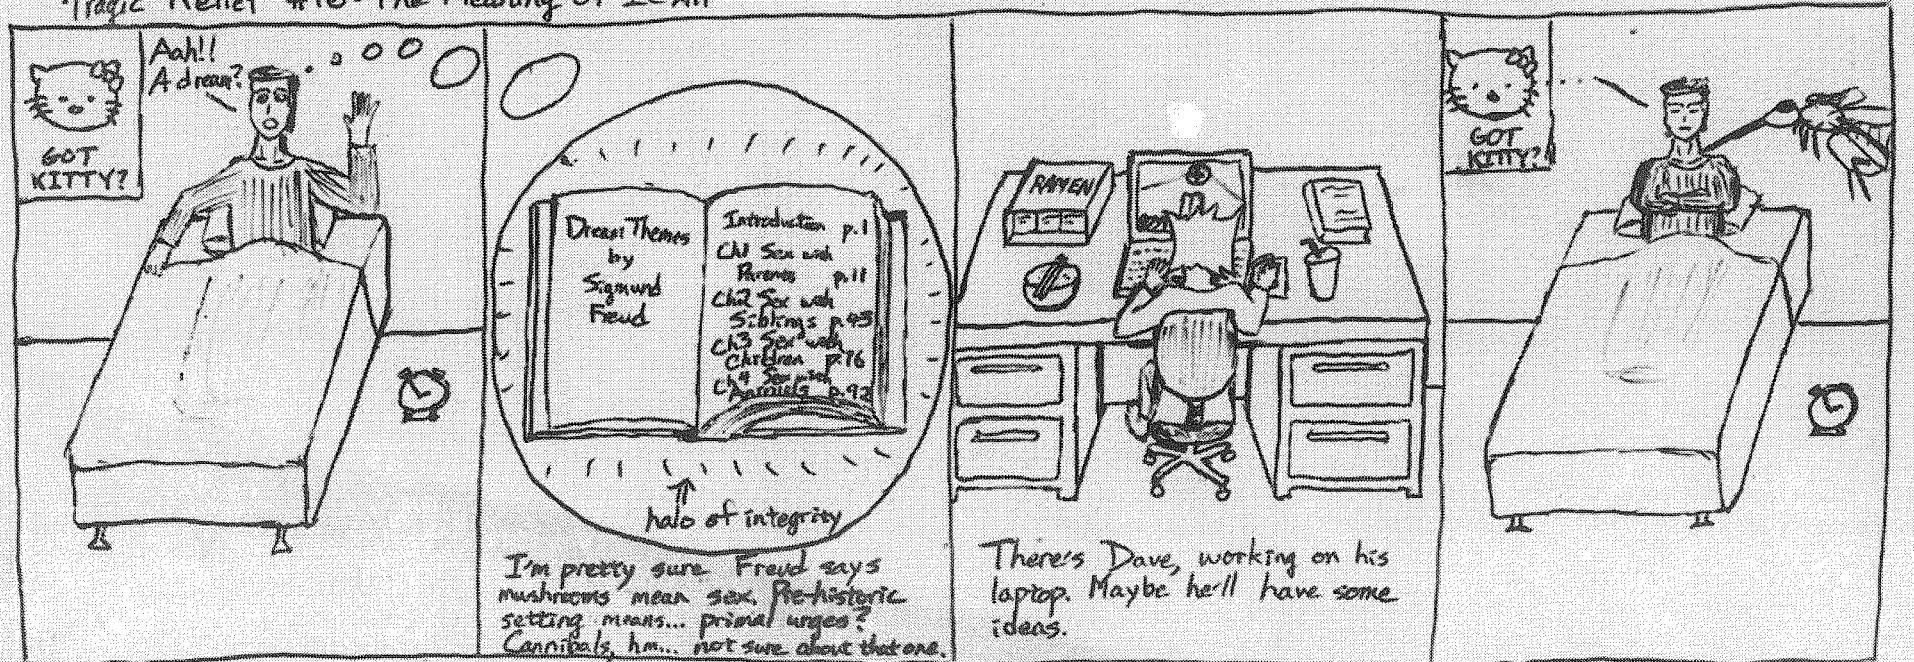 Tragic Relief #18: The Meaning of It All
Aah!!
A dream?
GOT
KITTY?
Dream Themes
by
Sigmund
Freud
Introduction p.1
Ch1 Sex with
Parents p.11
Ch2 Sex with
Siblings p.45
Ch3 Sex with
Children p.76
Ch4 Sex with
Animals p.92
halo of integrity
I'm pretty sure Freud says
mushrooms mean sex. Pre-historic
setting means... primal urges?
Cannibals, hm... not sure about that one.
RAMEN
There's Dave, working on his
laptop. Maybe he'll have some
ideas.
GOT
KITTY?